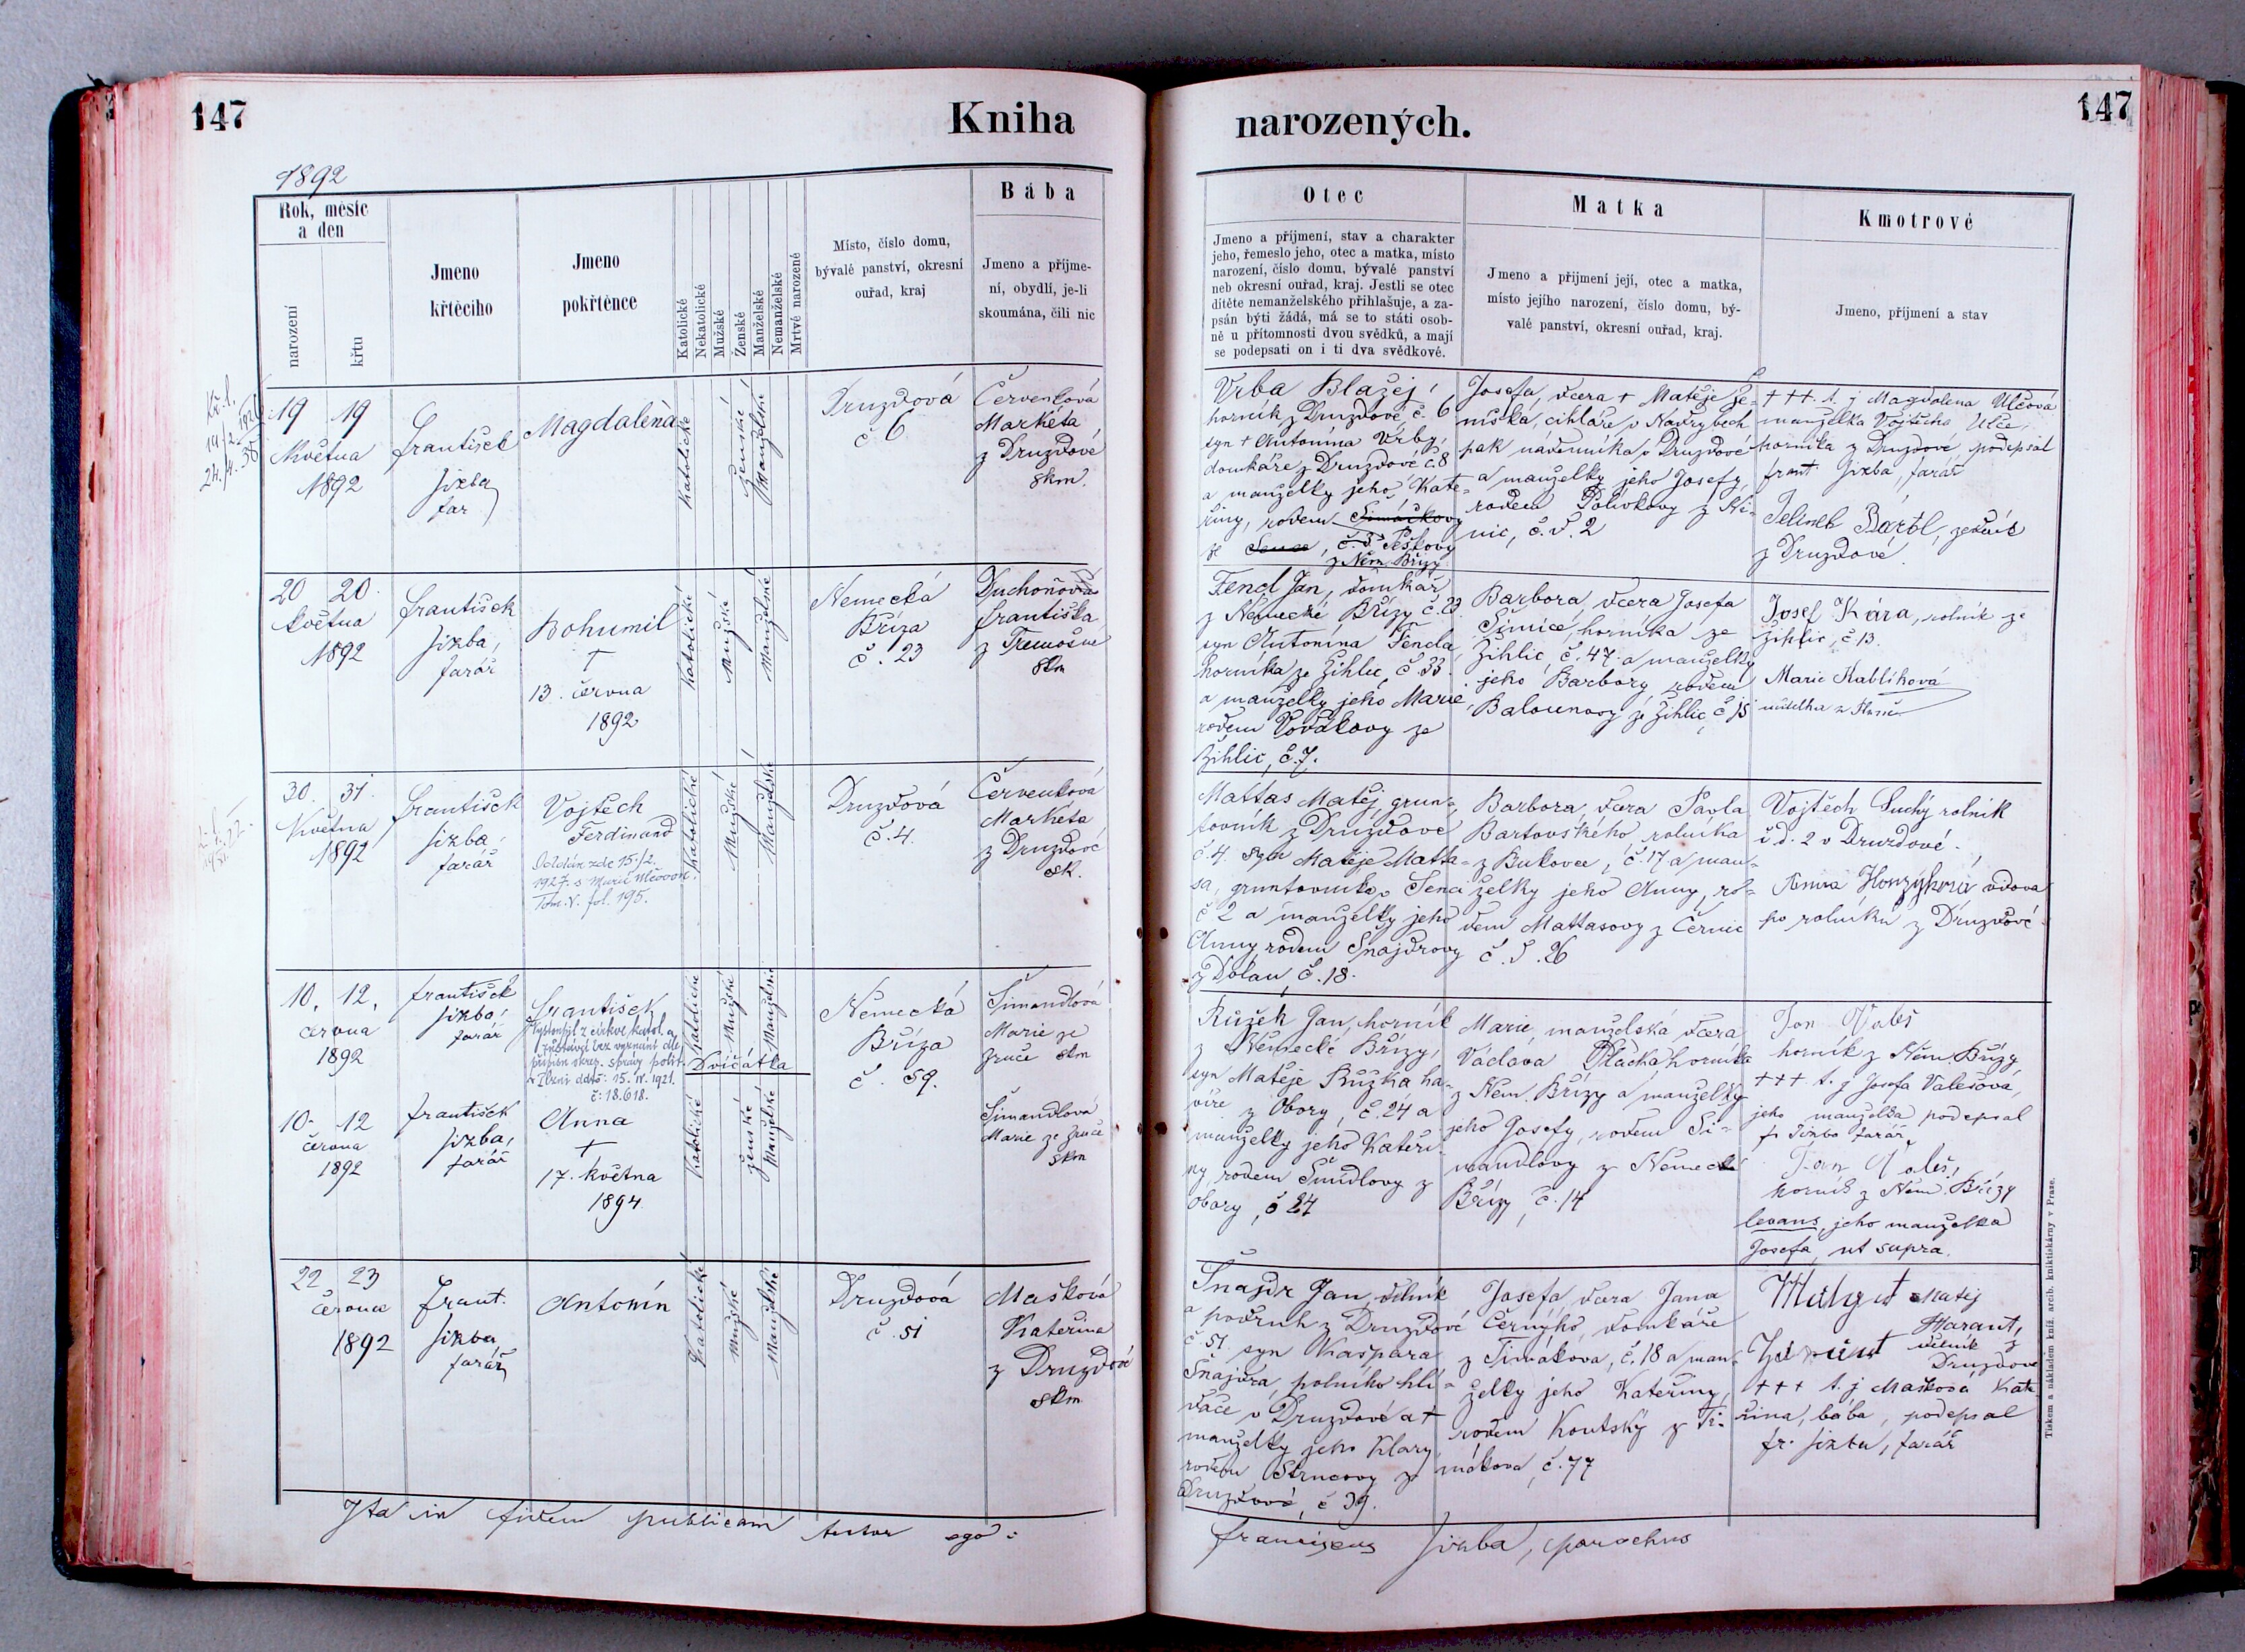 147
Kniha
1892
Rok, měsíc
a den
narození
křtu
Jmeno
křtěcího
Jmeno
pokřtěnce
Katolické
Nekatolické
Mužské
Ženské
Manželské
Nemanželské
Mrtvě narozené
Místo, číslo domu,
bývalé panství, okresní
ouřad, kraj
Bába
Jmeno a příjme-
ní, obydlí, je-li
skoumána, čili nic
19 19
Května
1892
František
Jizba
far
Magdaléna
Katolické
Ženské
Manželské
Druzdová
č. 6
Červenková
Markéta
z Druzdové
skm.
20 20.
května
1892
František
Jizba,
farář
Bohumil
†
13. června
1892
Katolické
Mužské
Manželské
Německá
Bříza
č. 23
Duchoňová
Františka
z Třemošné
skm
30. 31.
Května
1892
František
Jizba,
farář
Vojtěch
Ferdinand
Oddán zde 15./2.
1927. s Marií
Tom. V. fol. 195.
Katolické
Mužské
Manželské
Druzdová
č. 4.
Červenková
Markéta
z Druzdové
sk.
10. 12.
června
1892
František
Jizba,
farář
František
Vystoupil z církve katol. a
zůstává bez vyznání dle
přípisu okres. správy polit.
č: 18.618.
Katolické
Mužské
Manželské
Dvíčátka
Německá
Bříza
č. 59.
Šimandlová
Marie ze
Zruče skm
10. 12
června
1892
František
Jizba,
farář
Anna
†
17. května
1894
Katolické
ženské
Manželské
Šimandlová
Marie ze Zruče
skm
22 23
června
1892
Frant.
Jizba,
farář
Antonín
Katolické
Mužské
Manželské
Druzdová
č. 51
Mašková
Kateřina
z Druzdové
skm
Ita in fidem publicam testor ego:
147
narozených.
Otec
Jmeno a příjmení, stav a charakter
jeho, řemeslo jeho, otec a matka, místo
narození, číslo domu, bývalé panství
neb okresní ouřad, kraj. Jestli se otec
dítěte nemanželského přihlašuje, a za-
psán býti žádá, má se to státi osob-
ně u přítomnosti dvou svědků, a mají
se podepsati on i ti dva svědkové.
Matka
Jmeno a příjmení její, otec a matka,
místo jejího narození, číslo domu, bý-
valé panství, okresní ouřad, kraj.
Kmotrové
Jmeno, příjmení a stav
Vrba Blažej,
horník z Druzdové č. 6
syn † Antonína Vrby,
domkáře z Druzdové č. 8
a manželky jeho Kate-
řiny, rodem Šimáčkovy
ze Senec, č. 3 Peškovy
z Něm. Břízy
Josefa, dcera † Matěje Že-
níška, cihláře v Nadrybech
pak nádenníka v Druzdové
a manželky jeho Josefy,
rodem Polívkovy z Ni-
nic, č. d. 2
††† t. j Magdalena Ulčová
manželka Vojtěcha Ulče,
horníka z Druzdové, podepsal
frant Jizba, farář
Jelínek Bartl,
z Druzdové.
Fencl Jan, domkář
z Německé Břízy č. 23
syn Antonína Fencla,
horníka ze Žihlic, č. 33.
a manželky jeho Marie,
rodem
Žihlic, č. 7.
Barbora, dcera Josefa
Šimice, horníka ze
Žihlic, č. 47. a manželky
jeho Barbory, rodem
Balounovy ze Žihlic, č 15
Josef Kára, rolník ze
Žihlic, č 13.
Marie Kablíková
Mattas Matěj, grun-
tovník z Druzdové
č. 4. syn Matěje Matta-
sa, gruntovníka v Senci
č 2 a manželky jeho
Anny, rodem Šnajdrovy
z Dolan, č. 18.
Barbora, dcera Pavla
Bartovského, rolníka
z Bukovce, č. 17 a man-
želky jeho Anny, ro-
dem Mattasovy z Černic
č. d. 26
Vojtěch Suchý rolník
č d. 2 v Druzdové.
Anna Honzyková vdova
po rolníku z Druzdové
Růžek Jan, horník
z Německé Břízy,
syn Matěje Růžka ha-
víře z Obory, č. 24 a
manželky jeho Kateři-
ny, rodem Šmidlovy z
Obory, č 24
Marie, manželská dcera
Václava Plačka horníka
z Něm. Břízy a manželky
jeho Josefy, rodem Ši-
mandlovy z Německé
Břízy, č. 14
Jan Valeš
horník z Něm. Břízy
††† t. j Josefa Valešová,
jeho manželka podepsal
fr Jizba farář
Jan Valeš,
horník z Něm. Břízy
levans, jeho manželka
Josefa, ut supra.
Šnajdr Jan, dělník
a podruh z Druzdové
č. 51. syn Kašpara
Šnajdra, polního hlí-
dače v Druzdové a †
manželky jeho Klary,
rodem Strnadovy z
Druzdové, č 39.
Josefa dcera Jana
Černého, domkáře
z Timákova, č. 18 a man-
želky jeho Kateřiny,
rodem Koutský z Ti-
mákova, č. 77
Matěj
Harant,
dělník z
Druzdové
††† t. j Mašková Kate-
řina, bába, podepsal
fr. Jizba, farář
Franciscus Jizba, parochus
Tiskem a nákladem kníž. arcib. knihtiskárny v Praze.